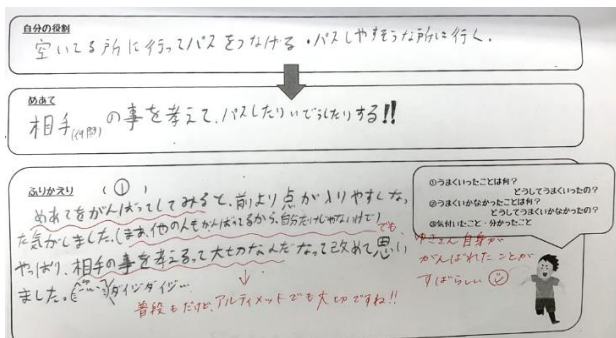 自分の役割
空いてる所に行ってパスをつなげる・パスしやすそうな所に行く.
めあて
相手(仲間)の事を考えて、パスしたりいどうしたりする!!
ふりかえり (①)
めあてをがんばってしてみると、前より点が入りやすくなっ
た気がしました。(まあ、他の人もがんばってるから、自分だけじゃないけど)
でも
やっぱり、相手の事を考えるって大切なんだなって改めて思い
ました。ダイジダイジ…
普段もだけど、アルティメットでも大切ですね!!
①うまくいったことは何?
どうしてうまくいったの?
②うまくいかなかったことは何?
どうしてうまくいかなかったの?
③気付いたこと・分かったこと
ゆきさん自身が
がんばれたことが
すばらしい